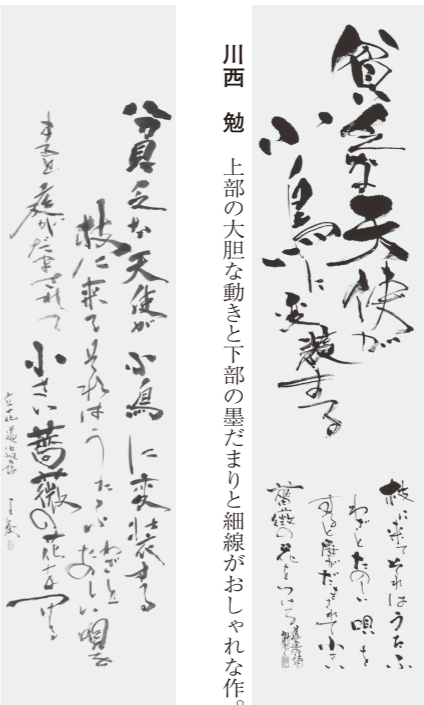 貧乏な天使が
小鳥に変装する
枝に来てそれはうたふ
わざとたのしい唄を
すると庭がだまされて小さい
薔薇の花をつける
川西　勉　上部の大胆な動きと下部の墨だまりと細線がおしゃれな作。
貧乏な天使が小鳥に変装する
枝に来てそれはうたふわざと
たのしい唄を
すると庭がだまされて
小さい薔薇の花をつける
立原道造の詩